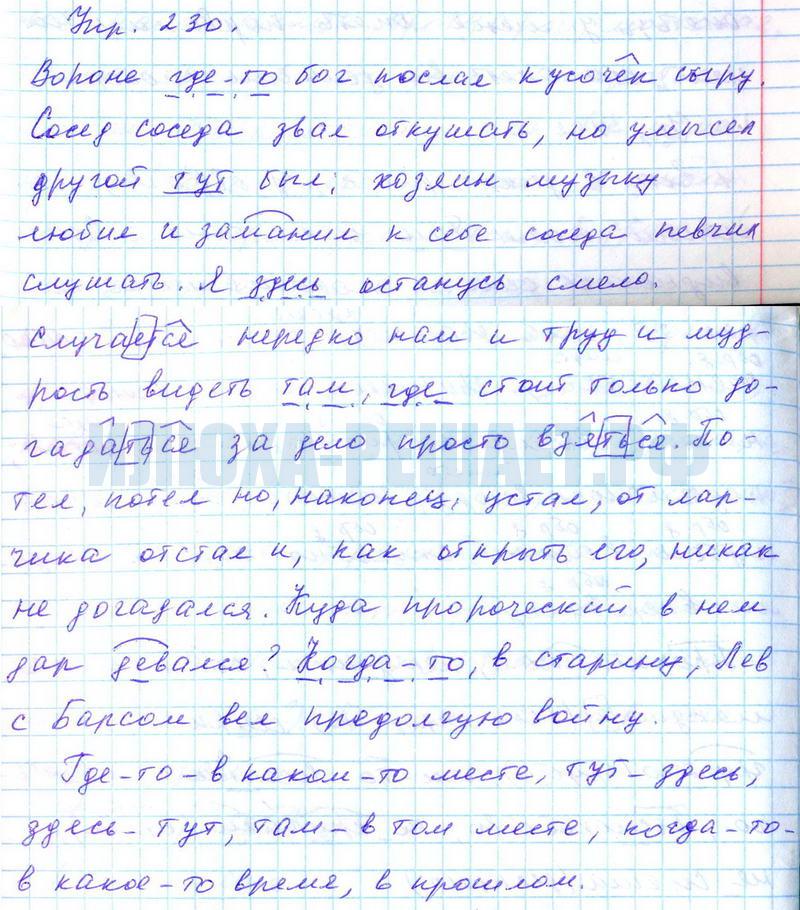 Упр. 230.
Вороне где-то бог послал кусочек сыру.
Сосед соседа звал откушать, но умысел
другой тут был; хозяин музыку
любил и заманил к себе соседа певчих
слушать. Я здесь останусь смело.
Случается нередко нам и труд и муд-
рость видеть там, где стоит только до-
гадаться за дело просто взяться. По-
тел, потел но, наконец, устал, от лар-
чика отстал и, как открыть его, никак
не догадался. Куда пророческий в нем
дар девался? Когда-то, в старину, Лев
с Барсом вел предолгую войну.
Где-то - в каком-то месте, тут - здесь,
здесь - тут, там - в том месте, когда-то -
в какое-то время, в прошлом.
ИЛЮХА-РЕШАЕТ.РФ